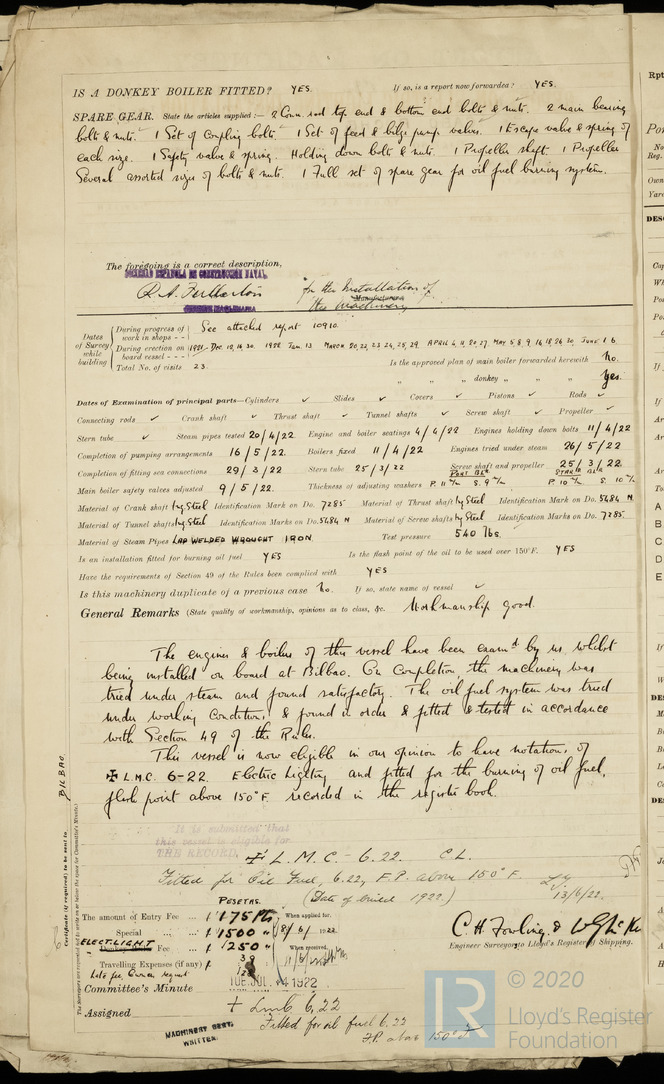 IS A DONKEY BOILER FITTED? YES. If so, is a report now forwarded? YES.
SPARE GEAR. State the articles supplied:— 2 Conn. rod top end & bottom end bolts & nuts. 2 main bearing
bolts & nuts. 1 Set of Coupling bolts. 1 Set of feed & bilge pump valves. 1 Escape valve & spring of
each size. 1 Safety valve & spring. Holding down bolts & nuts. 1 Propeller shaft. 1 Propeller
Several assorted sizes of bolts & nuts. 1 Full set of spare gear for oil fuel burning system.
The foregoing is a correct description,
SOCIEDAD ESPAÑOLA DE CONSTRUCCIÓN NAVAL
R. A. Fullerton for the Installation of
the machinery Manufacturer
Dates of Survey while building
During progress of work in shops - - See attached report 10910.
During erection on board vessel - - - 1921 - Dec. 12, 16, 30. 1922 Jan. 13 MARCH 20, 22, 23, 24, 25, 29. APRIL 4, 11, 20, 27. MAY 5, 8, 9, 16, 18, 26, 30. JUNE 1, 6.
Total No. of visits 23. Is the approved plan of main boiler forwarded herewith No.
" " " donkey " " " Yes.
Dates of Examination of principal parts—Cylinders ✓ Slides ✓ Covers ✓ Pistons ✓ Rods ✓
Connecting rods ✓ Crank shaft ✓ Thrust shaft ✓ Tunnel shafts ✓ Screw shaft ✓ Propeller ✓
Stern tube ✓ Steam pipes tested 20/4/22 Engine and boiler seatings 4/4/22 Engines holding down bolts 11/4/22
Completion of pumping arrangements 16/5/22 Boilers fixed 11/4/22 Engines tried under steam 26/5/22
Completion of fitting sea connections 29/3/22 Stern tube 25/3/22 Screw shaft and propeller 25/3/22
Main boiler safety valves adjusted 9/5/22. Thickness of adjusting washers PORT BLR P. 11 m/m S. 9 m/m STARB BLR P. 10 m/m S. 10 m/m
Material of Crank shaft Ing Steel Identification Mark on Do. 7285 Material of Thrust shaft Ing Steel Identification Mark on Do. 5484 N.
Material of Tunnel shafts Ing Steel Identification Marks on Do. 5484 N Material of Screw shafts Ing Steel Identification Marks on Do. 7285.
Material of Steam Pipes LAP WELDED WROUGHT IRON. Test pressure 540 lbs.
Is an installation fitted for burning oil fuel YES Is the flash point of the oil to be used over 150°F. YES
Have the requirements of Section 49 of the Rules been complied with YES
Is this machinery duplicate of a previous case No. If so, state name of vessel ✓
General Remarks (State quality of workmanship, opinions as to class, &c. Workmanship good.
The engines & boilers of this vessel have been examd by us whilst
being installed on board at Bilbao. On completion, the machinery was
tried under steam and found satisfactory. The oil fuel system was tried
under working conditions, & found in order & fitted & tested in accordance
with Section 49 of the Rules.
This vessel is now eligible in our opinion to have notations of
✠ L.M.C. 6-22. Electric Lighting and fitted for the burning of oil fuel,
flash point above 150°F. recorded in the register book.
It is submitted that
this vessel is eligible for
THE RECORD. ✠ L.M.C. - 6.22. C.L.
Fitted for Oil Fuel, 6.22, F.P. above 150°F.
(Date of build 1922.) 13/6/22.
PESETAS.
The amount of Entry Fee ... 175 Pts When applied for.
Special ... ... 1500 " 8/6/1922
ELECT. LIGHT Donkey Boiler Fee ... 1250 " When received.
Travelling Expenses (if any)
Late fee, Owners request
C.H. Fowling & W
Engineer Surveyors to Lloyd's Register of Shipping.
Committee's Minute TUE. JUL. 4 1922
Assigned + LMC 6,22
Fitted for oil fuel 6.22
F.P. above 150°F.
MACHINERY CERT.
WRITTEN.
BILBAO
Certificate (if required) to be sent to
(The Surveyors are requested not to write on or below the space for Committee's Minute.)
© 2020
Lloyd's Register
Foundation
LR
Rpt
No
Reg.
Own
Yard
DES
A
B
C
D
E